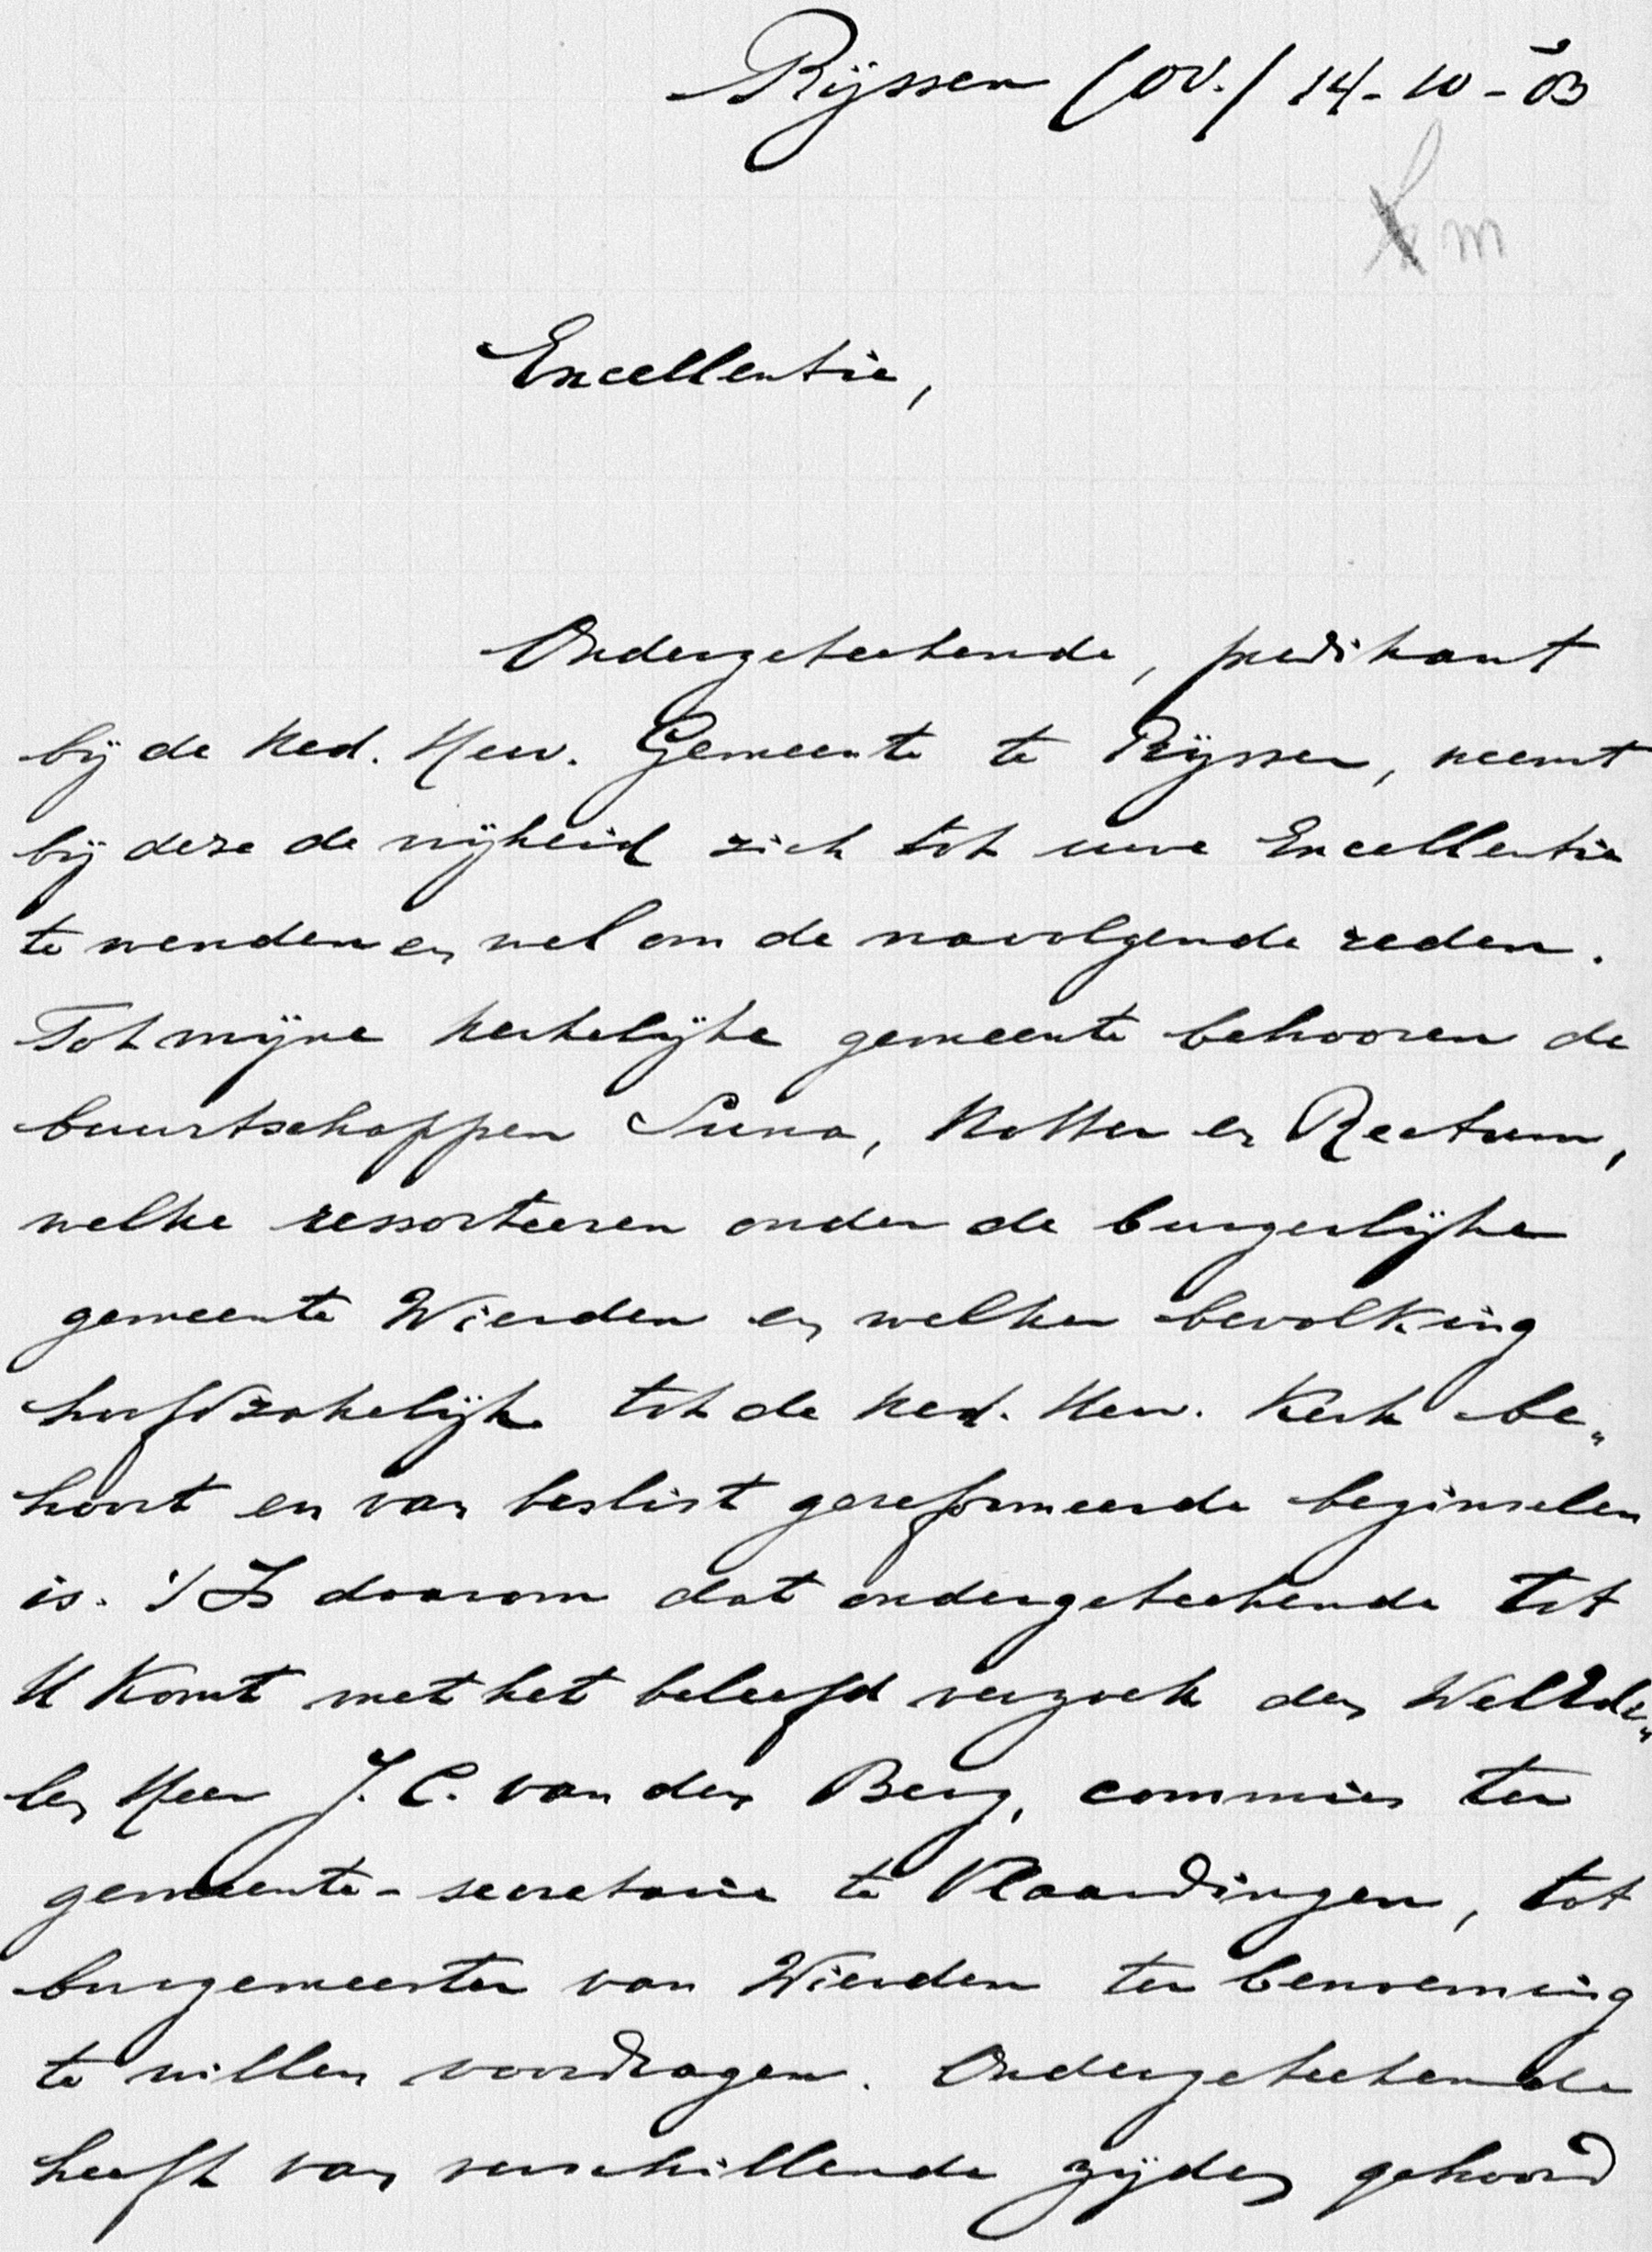 Rijssen (Ov.) 14-10-'03
Excellentie,
Ondergeteekende, predikant
bij de Ned. Herv. Gemeente te Rijssen, neemt
bij deze de vrijheid zich tot uwe Excellentie
te wenden en wel om de navolgende reden.
Tot mijne kerkelijke gemeente behooren de
buurtschappen Zuna, Notter en Rectum,
welke ressorteeren onder de burgerlijke
gemeente Wierden en welker bevolking
hoofdzakelijk tot de Ned. Herv. Kerk be„
hoort en van beslist gereformeerde beginselen
is. 't Is daarom dat ondergeteekende tot
U komt met het beleefd verzoek den WelEde„
len Heer J. C. van den Berg, commies ter
gemeente-secretarie te Vlaardingen, tot
burgemeester van Wierden ter benoeming
te willen voordragen. Ondergeteekende
heeft van verschillende zijden gehoord